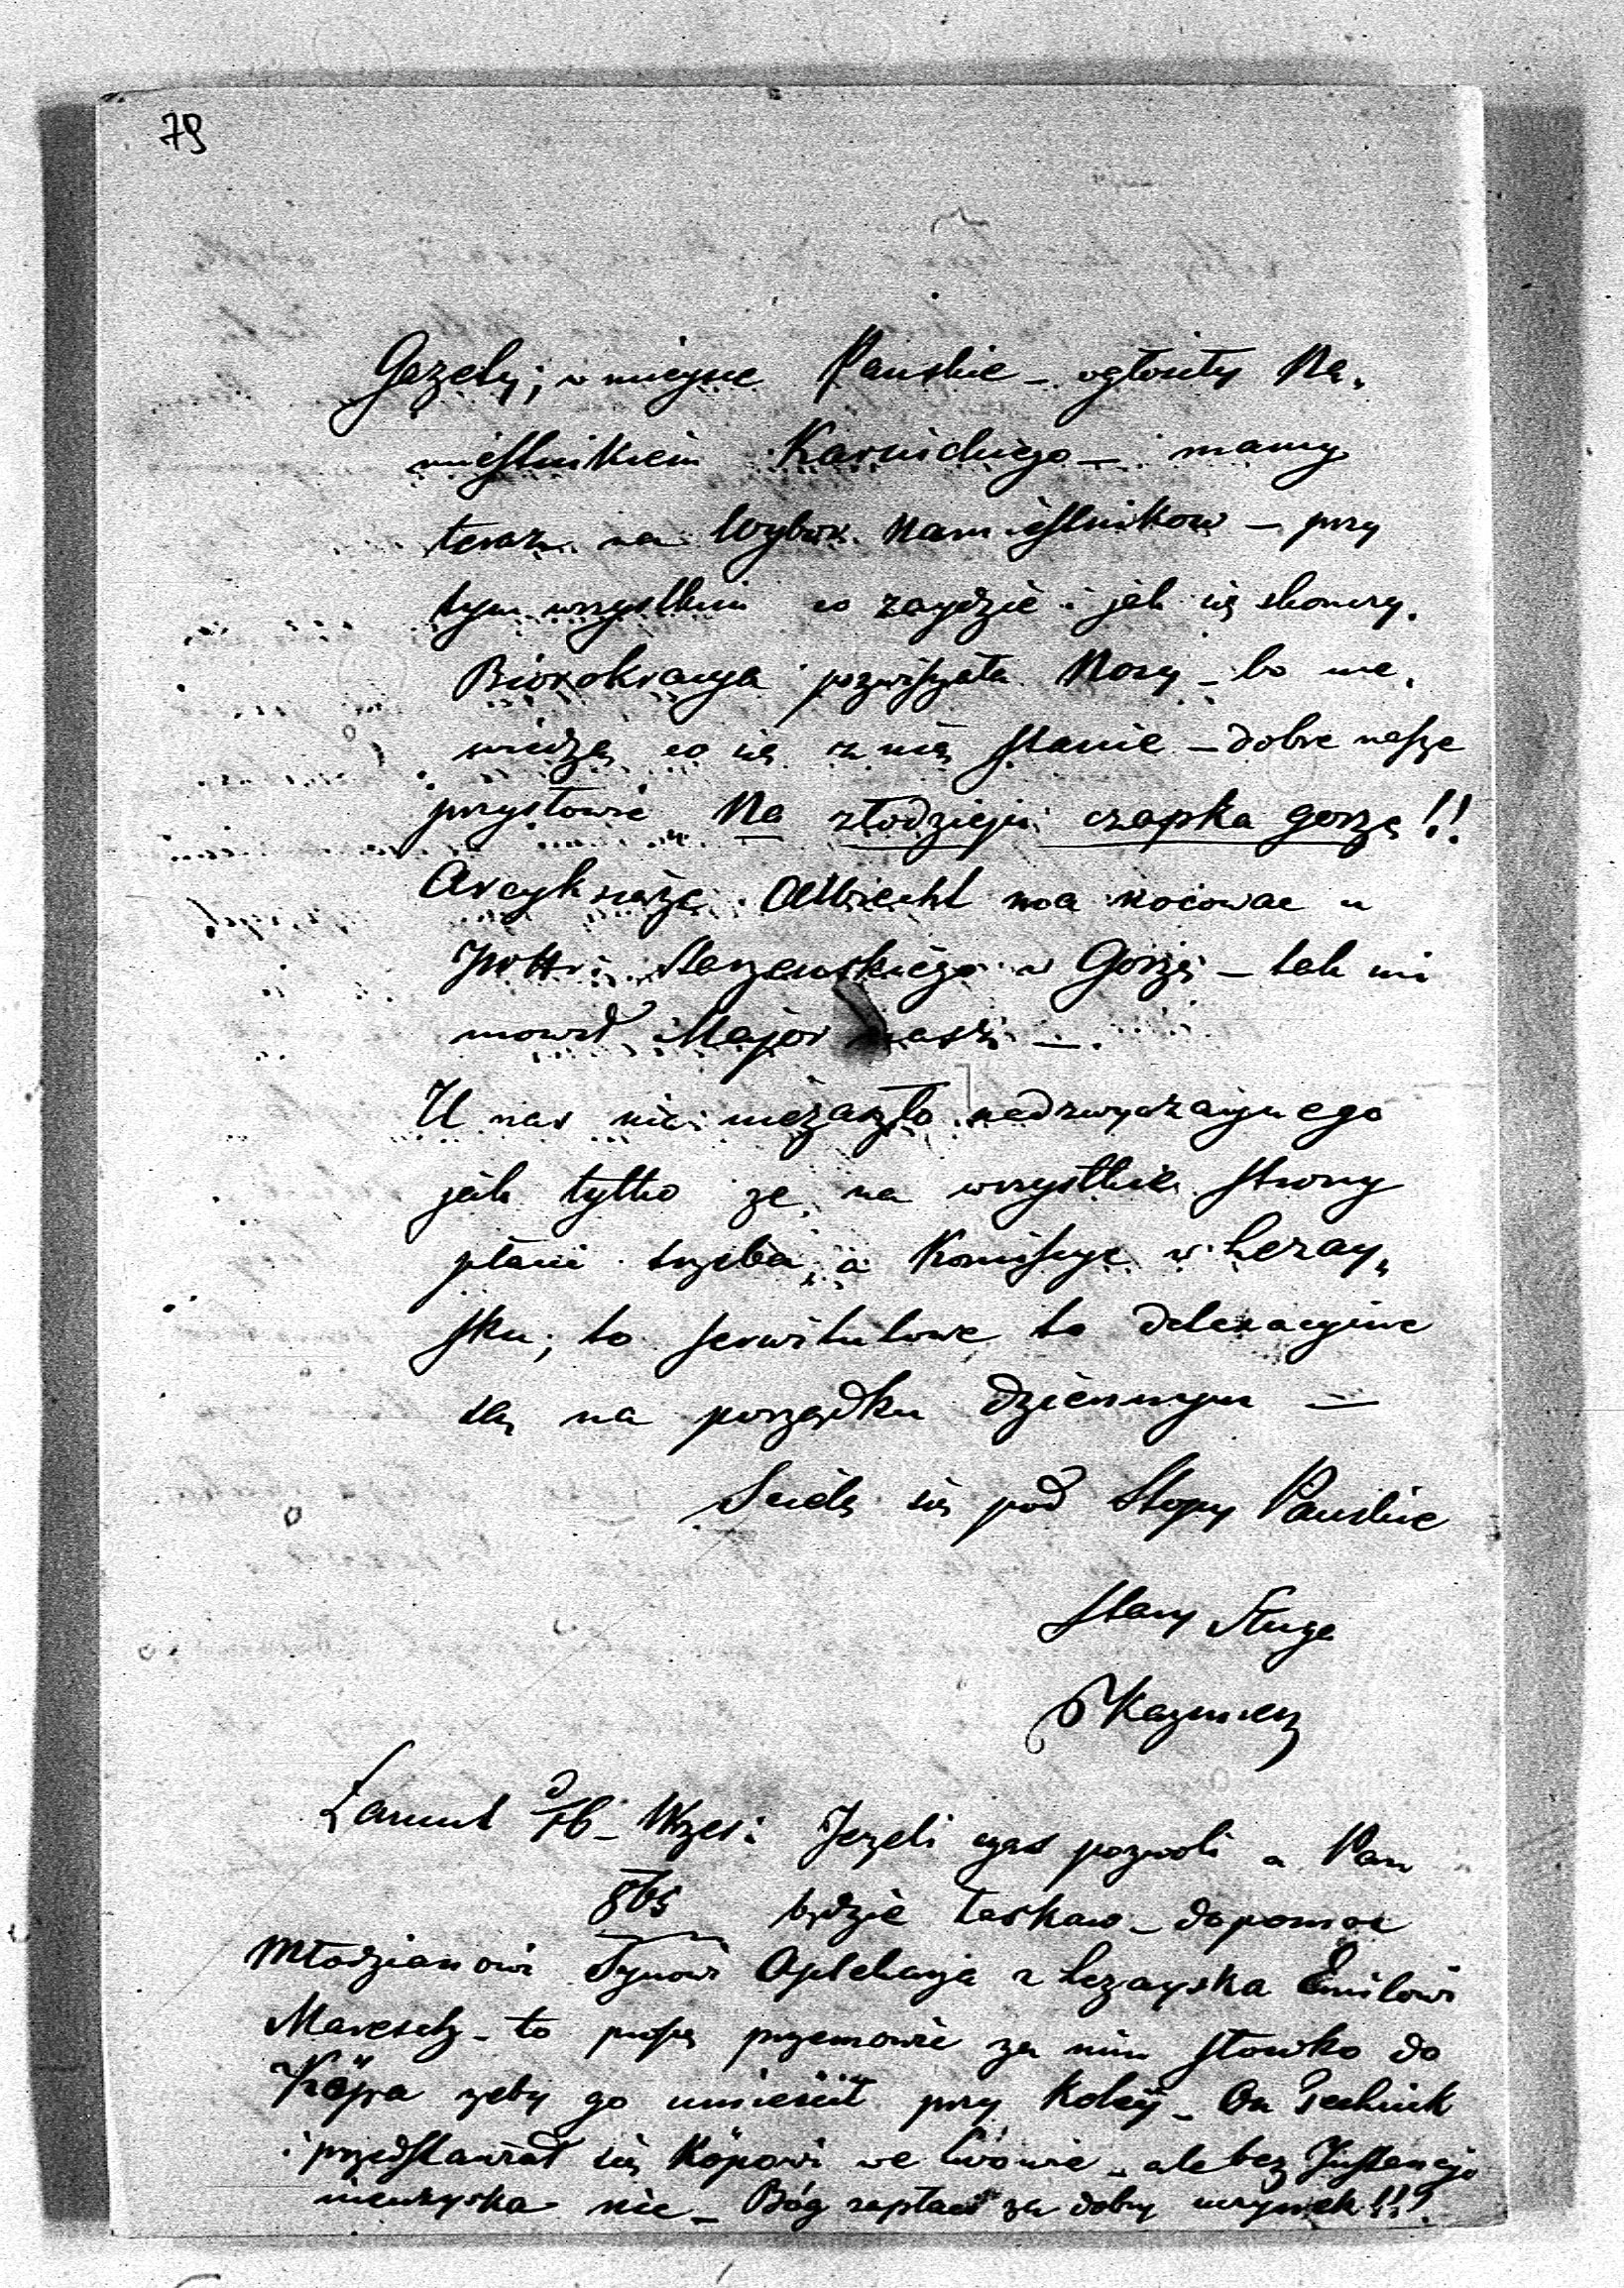 79
Gazety; w miejsce Pańskie – ogłosiły Na„
miestnikiem Karnickiego – mamy
teraz na Wybor Namiestnikow – przy
tym wszystkim co zaydzie i jak się skonczy.
Biórokracya pozwiszała Nosy – bo nie„
wiedzą co się z nią stanie – dobre nasze
przysłowie Na złodzieju czapka gorze!!
Arcyksiąże Albrecht ma nocować u
Starzenskiego w Gorze – tak mi
mowił Major nasz –.
U nas nic niezaszło nadzwyczaynego
jak tylko ze na wszystkie strony
płacić trzeba, a Komisye w Lezay„
sku; to serwitutowe to
są na porządku dziennym –
Scielę się pod Stopy Pańskie
stary Sługa
Kazmierz
Łancut d 16 – Wrzes: Jezeli czas pozwoli a Pan
865 będzie łaskaw – dopomoc
Młodzianowi Synowi Aptekarza z Lezayska Emilowi
Maresch – to proszę przemowić za nim słowko do
Köpa zeby go umieścił przy Koleji – On Technik
i przedstawiał się Köpowi we Lwowie – ale bez Instancyi
nieuzyska nic – Bóg zapłać za dobry uczynek!!!